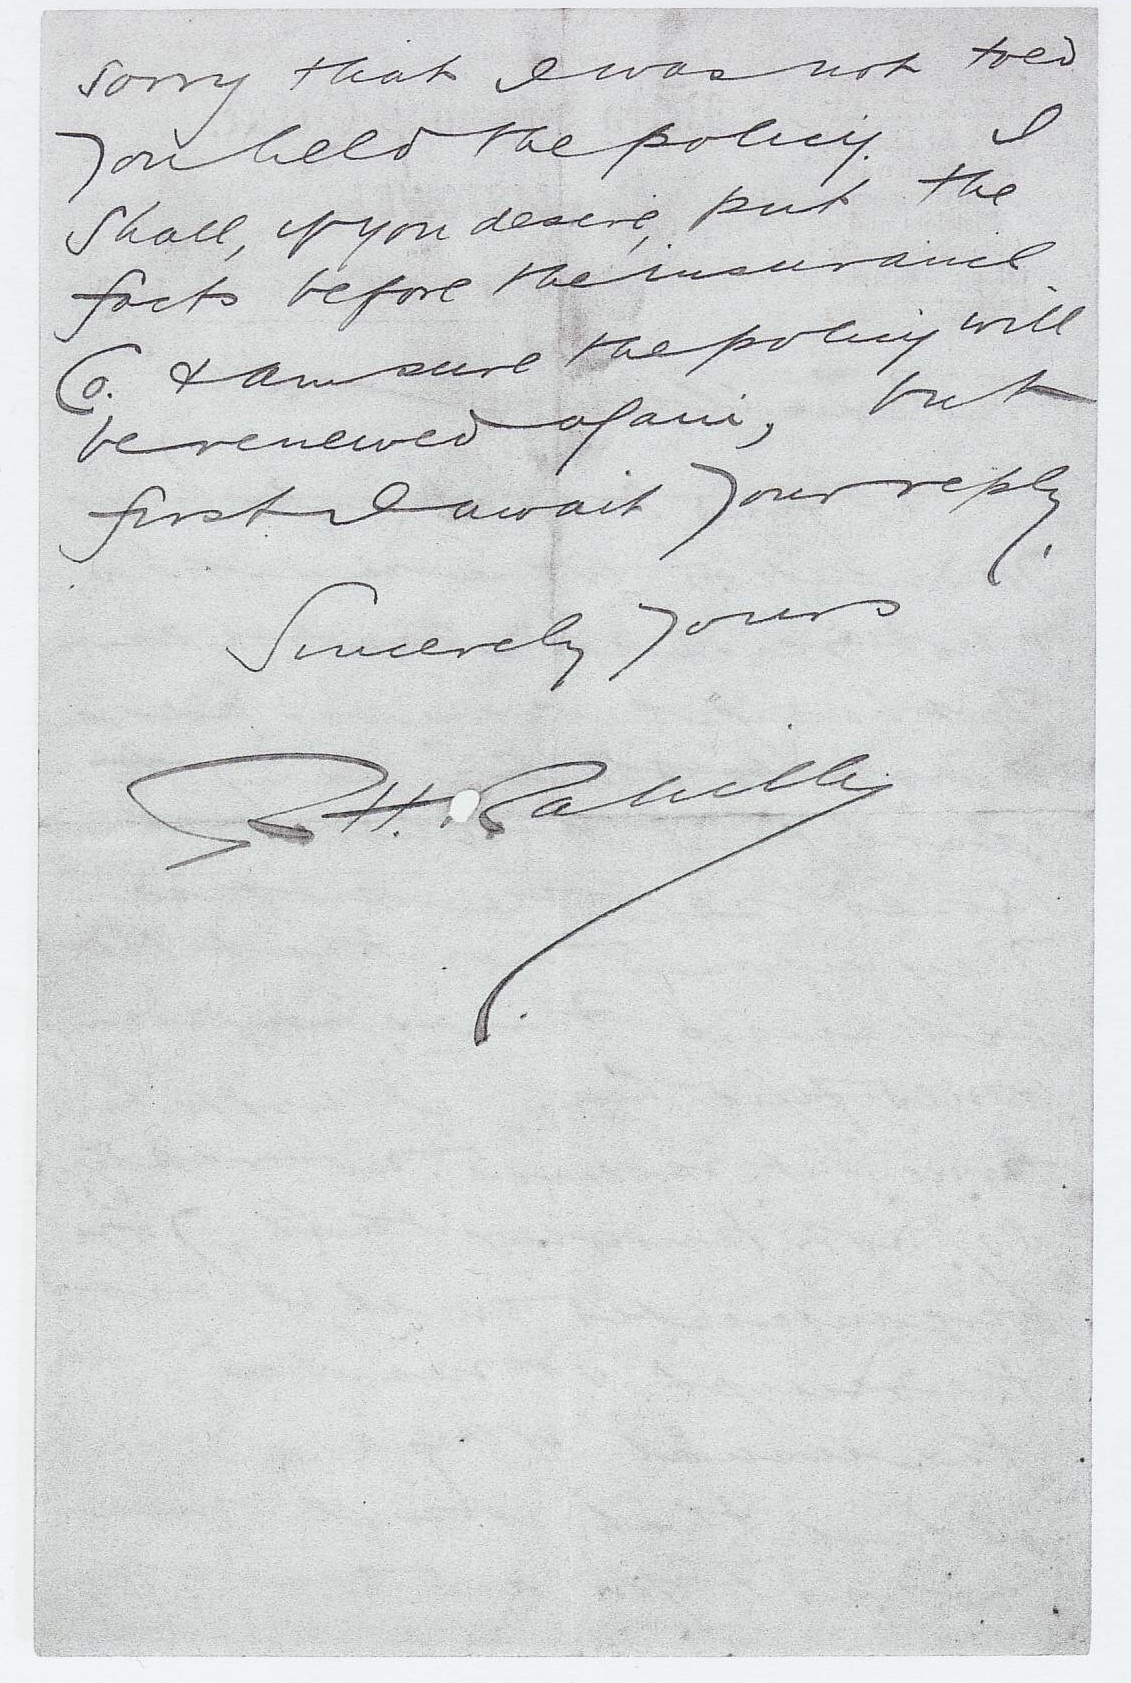 sorry that I was not told
you held the policy. I
shall, if you desire, put the
facts before the insurance
Co. & am sure the policy will
be renewed again, but
first I await your reply.
Sincerely yours
H.